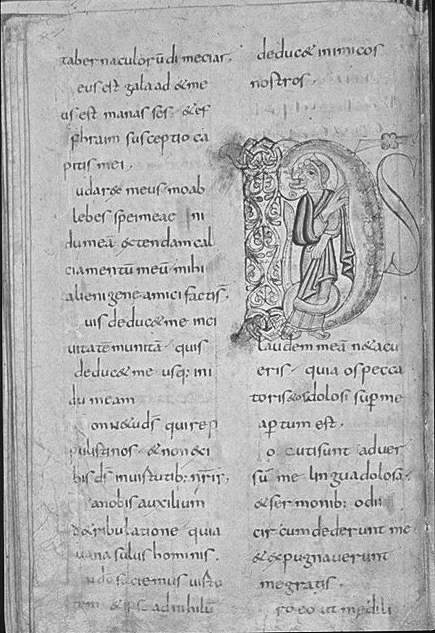 tabernaculorū dimeciar.
eus est galaad & me
us est manasses. & ef
phraim susceptio ca
pitis mei.
udarex meus moab
lebes spei meae In
dumeā extendam cal
ciamentū meū mihi
alienigene amici factisт.
uis deduc& me inci
uitatē munitā quis
deduc& me usq; in
dumeam
onne ds qui rep
pulisti nos & non exi
bis ds in uirtutib; nr̄is.
anobis auxiliū
d& ribulatione quia
uana salus hominis.
ndo faciemus uirtu
tem & ipse ad nihilū
deduc& inimicos
nostros.
D
laudem meā ne tacu
eris quia os pecca
toris & os dolosi sup me
apertum est.
ocuti sunt aduer
sū me lingua dolosa
& sermonib; odii
circumdederunt me
& expugnauerunt
me gratis.
ro eo ut me dili